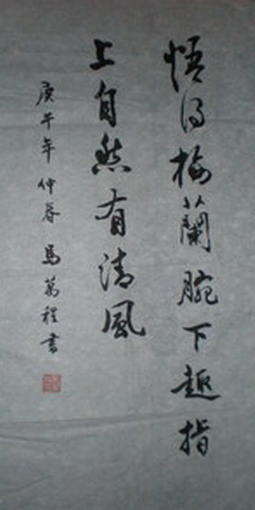 悟得梅蘭腕下趣指
上自然有清風
庚午年仲春馬萬程書